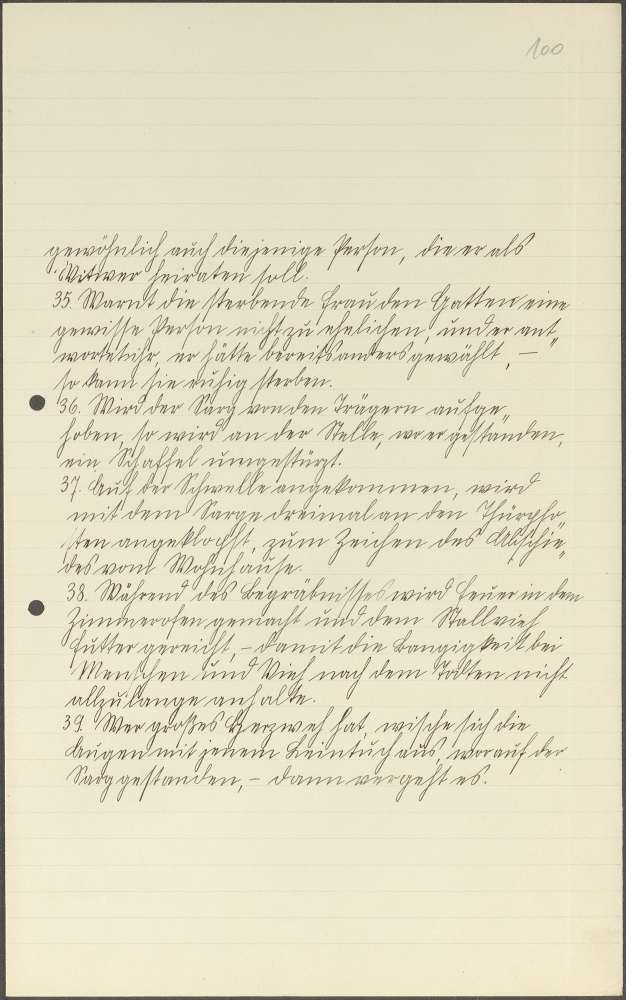 100
gewöhnlich auch diejenige Person, die er als
Witwer heiraten soll.
35. Warnt die sterbende Frau den Gatten eine
gewisse Person nicht zu ehelichen, und er ant„
wortet ihr, er hätte bereits anders gewählt, –
so kann sie ruhig sterben.
36. Wird der Sarg von den Trägern aufge„
hoben, so wird an der Stelle, wo er gestanden,
ein Schaffel umgestürzt.
37. Auf der Schwelle angekommen, wird
mit dem Sarge dreimal an den Thürpfo
sten angeklopft, zum Zeichen des Abschie„
des vom Wohnhause.
38. Während des Begräbnisses wird Feuer in dem
Zimmerofen gemacht und dem Stallvieh
Futter gereicht, – damit die Bangigkeit bei
Menschen und Vieh nach dem Todten nicht
allzulange anhalte.
39. Wer großes Herzweh hat, wische sich die
Augen mit jenem Leintuch aus, worauf der
Sarg gestanden, – dann vergeht es.